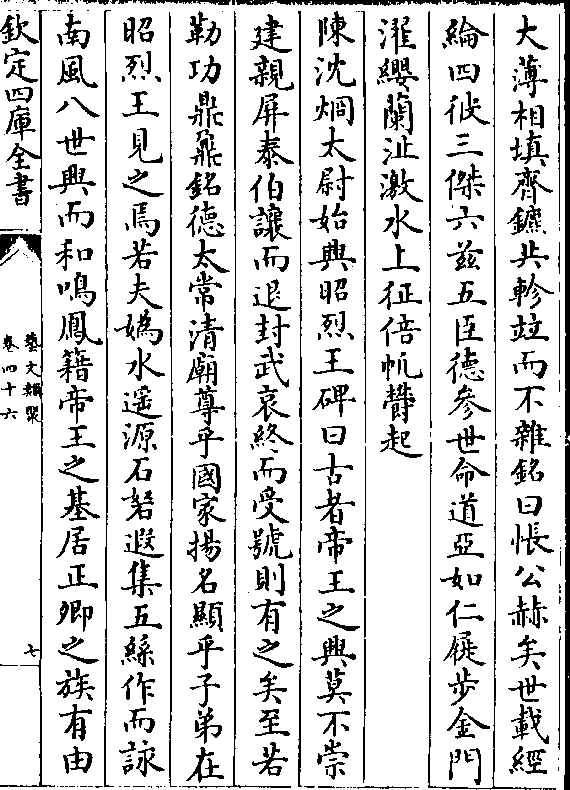 大薄相填齊鑣共軫竝而不雜銘曰悵公赫矣世載經
綸四彼三傑六兹五臣德參世命道亞如仁屣步金門
濯纓蘭沚激水上征倍帆欝起
陳沈炯太尉始興昭烈王碑曰古者帝王之興莫不崇
建親屏泰伯讓而退封武哀終而受號則有之矣至若
勒功鼎鼐銘德太常清廟尊乎國家揚名顯乎子弟在
昭烈王見之焉若夫媯水遥源石砮遐集五絲作而詠
南風八世興而和鳴鳳籍帝王之基居正卿之族有由
欽定四庫全書
藝文類聚
卷四十六
七